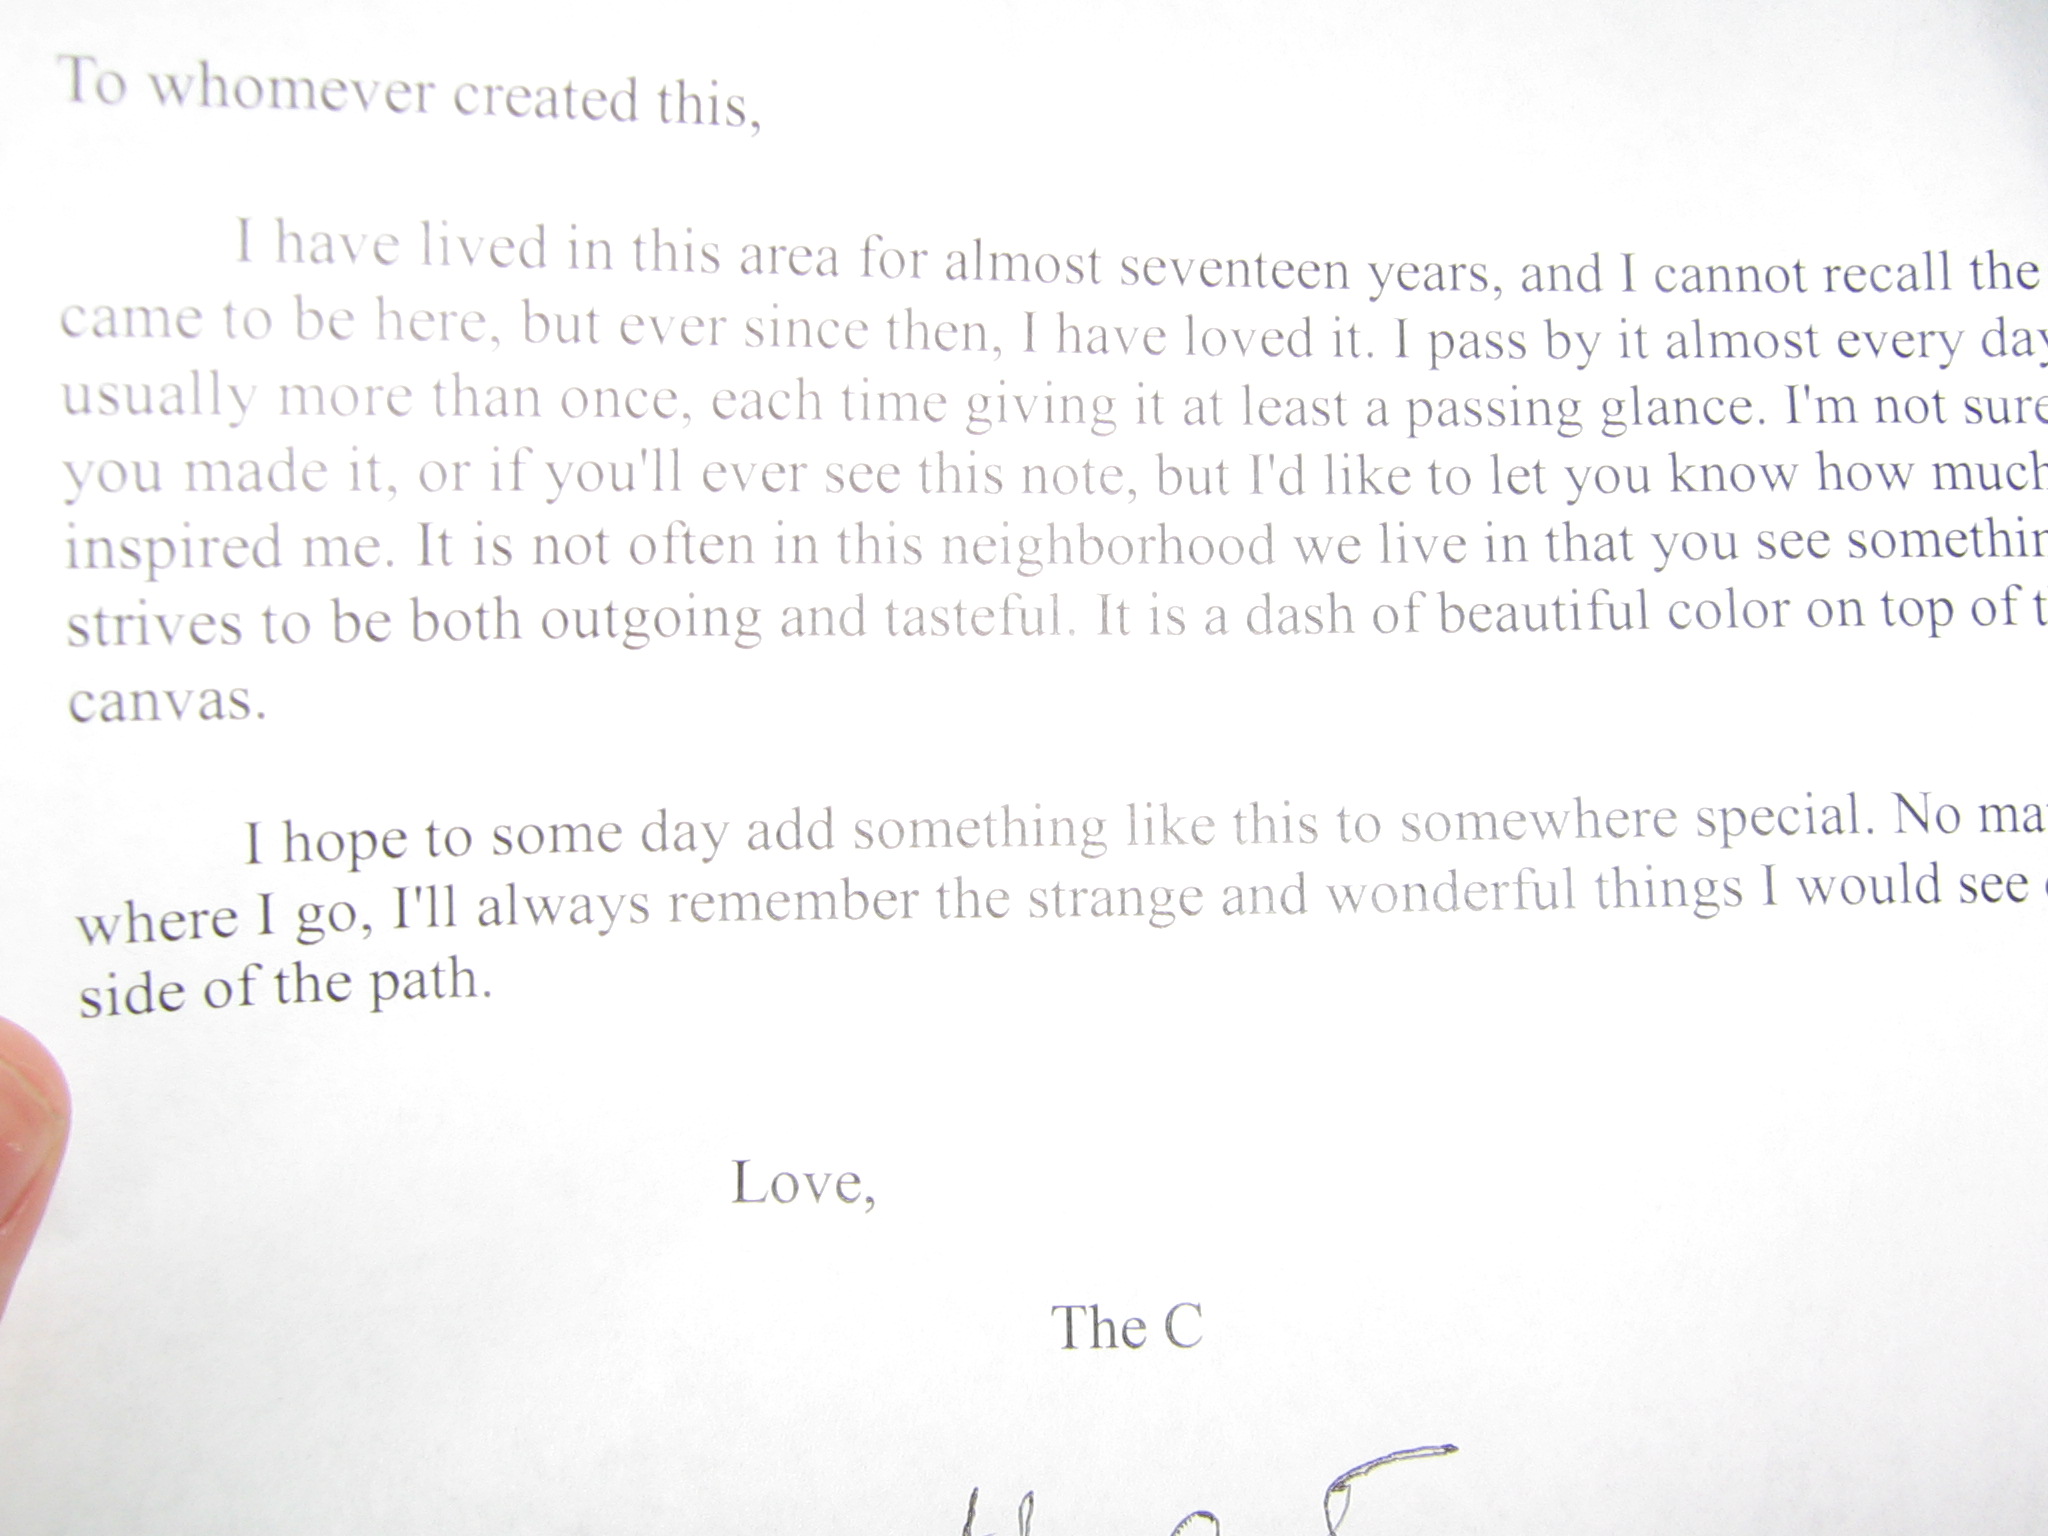 To whomever created this,
I have lived in this area for almost seventeen years, and I cannot recall the
came to be here, but ever since then, I have loved it. I pass by it almost every day
usually more than once, each time giving it at least a passing glance. I'm not sure
you made it, or if you'll ever see this note, but I'd like to let you know how much
inspired me. It is not often in this neighborhood we live in that you see somethin
strives to be both outgoing and tasteful. It is a dash of beautiful color on top of t
canvas.
I hope to some day add something like this to somewhere special. No ma
where I go, I'll always remember the strange and wonderful things I would see
side of the path.
Love,
The C